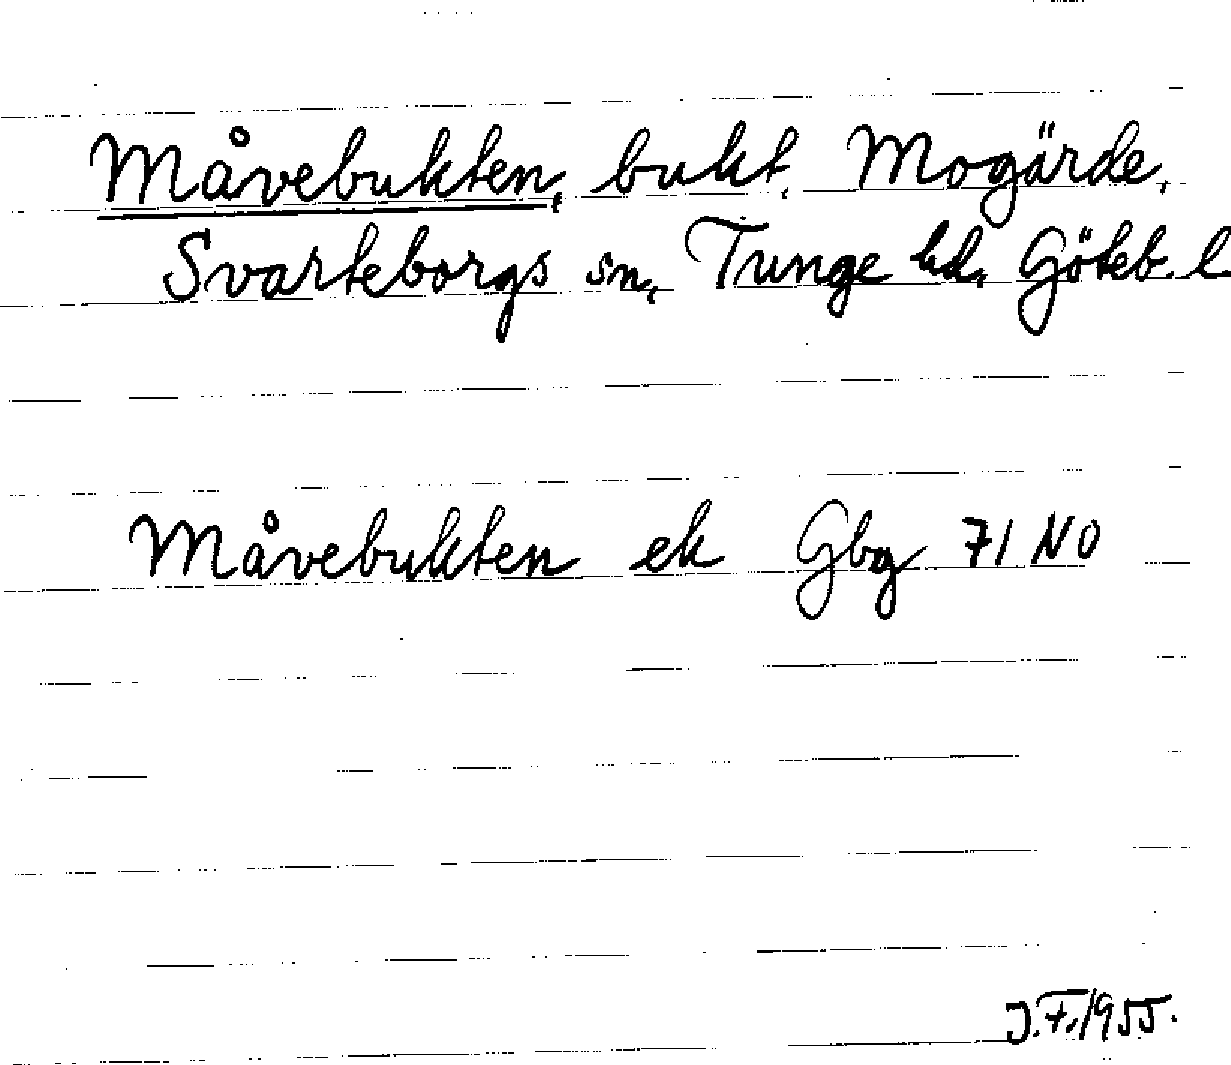 Måvebukten, bukt, Mogärde,
Svarteborgs sn, Tunge hd, Göteb. l
Måvebukten ek Gbg 71 NO
J.F. 1955.